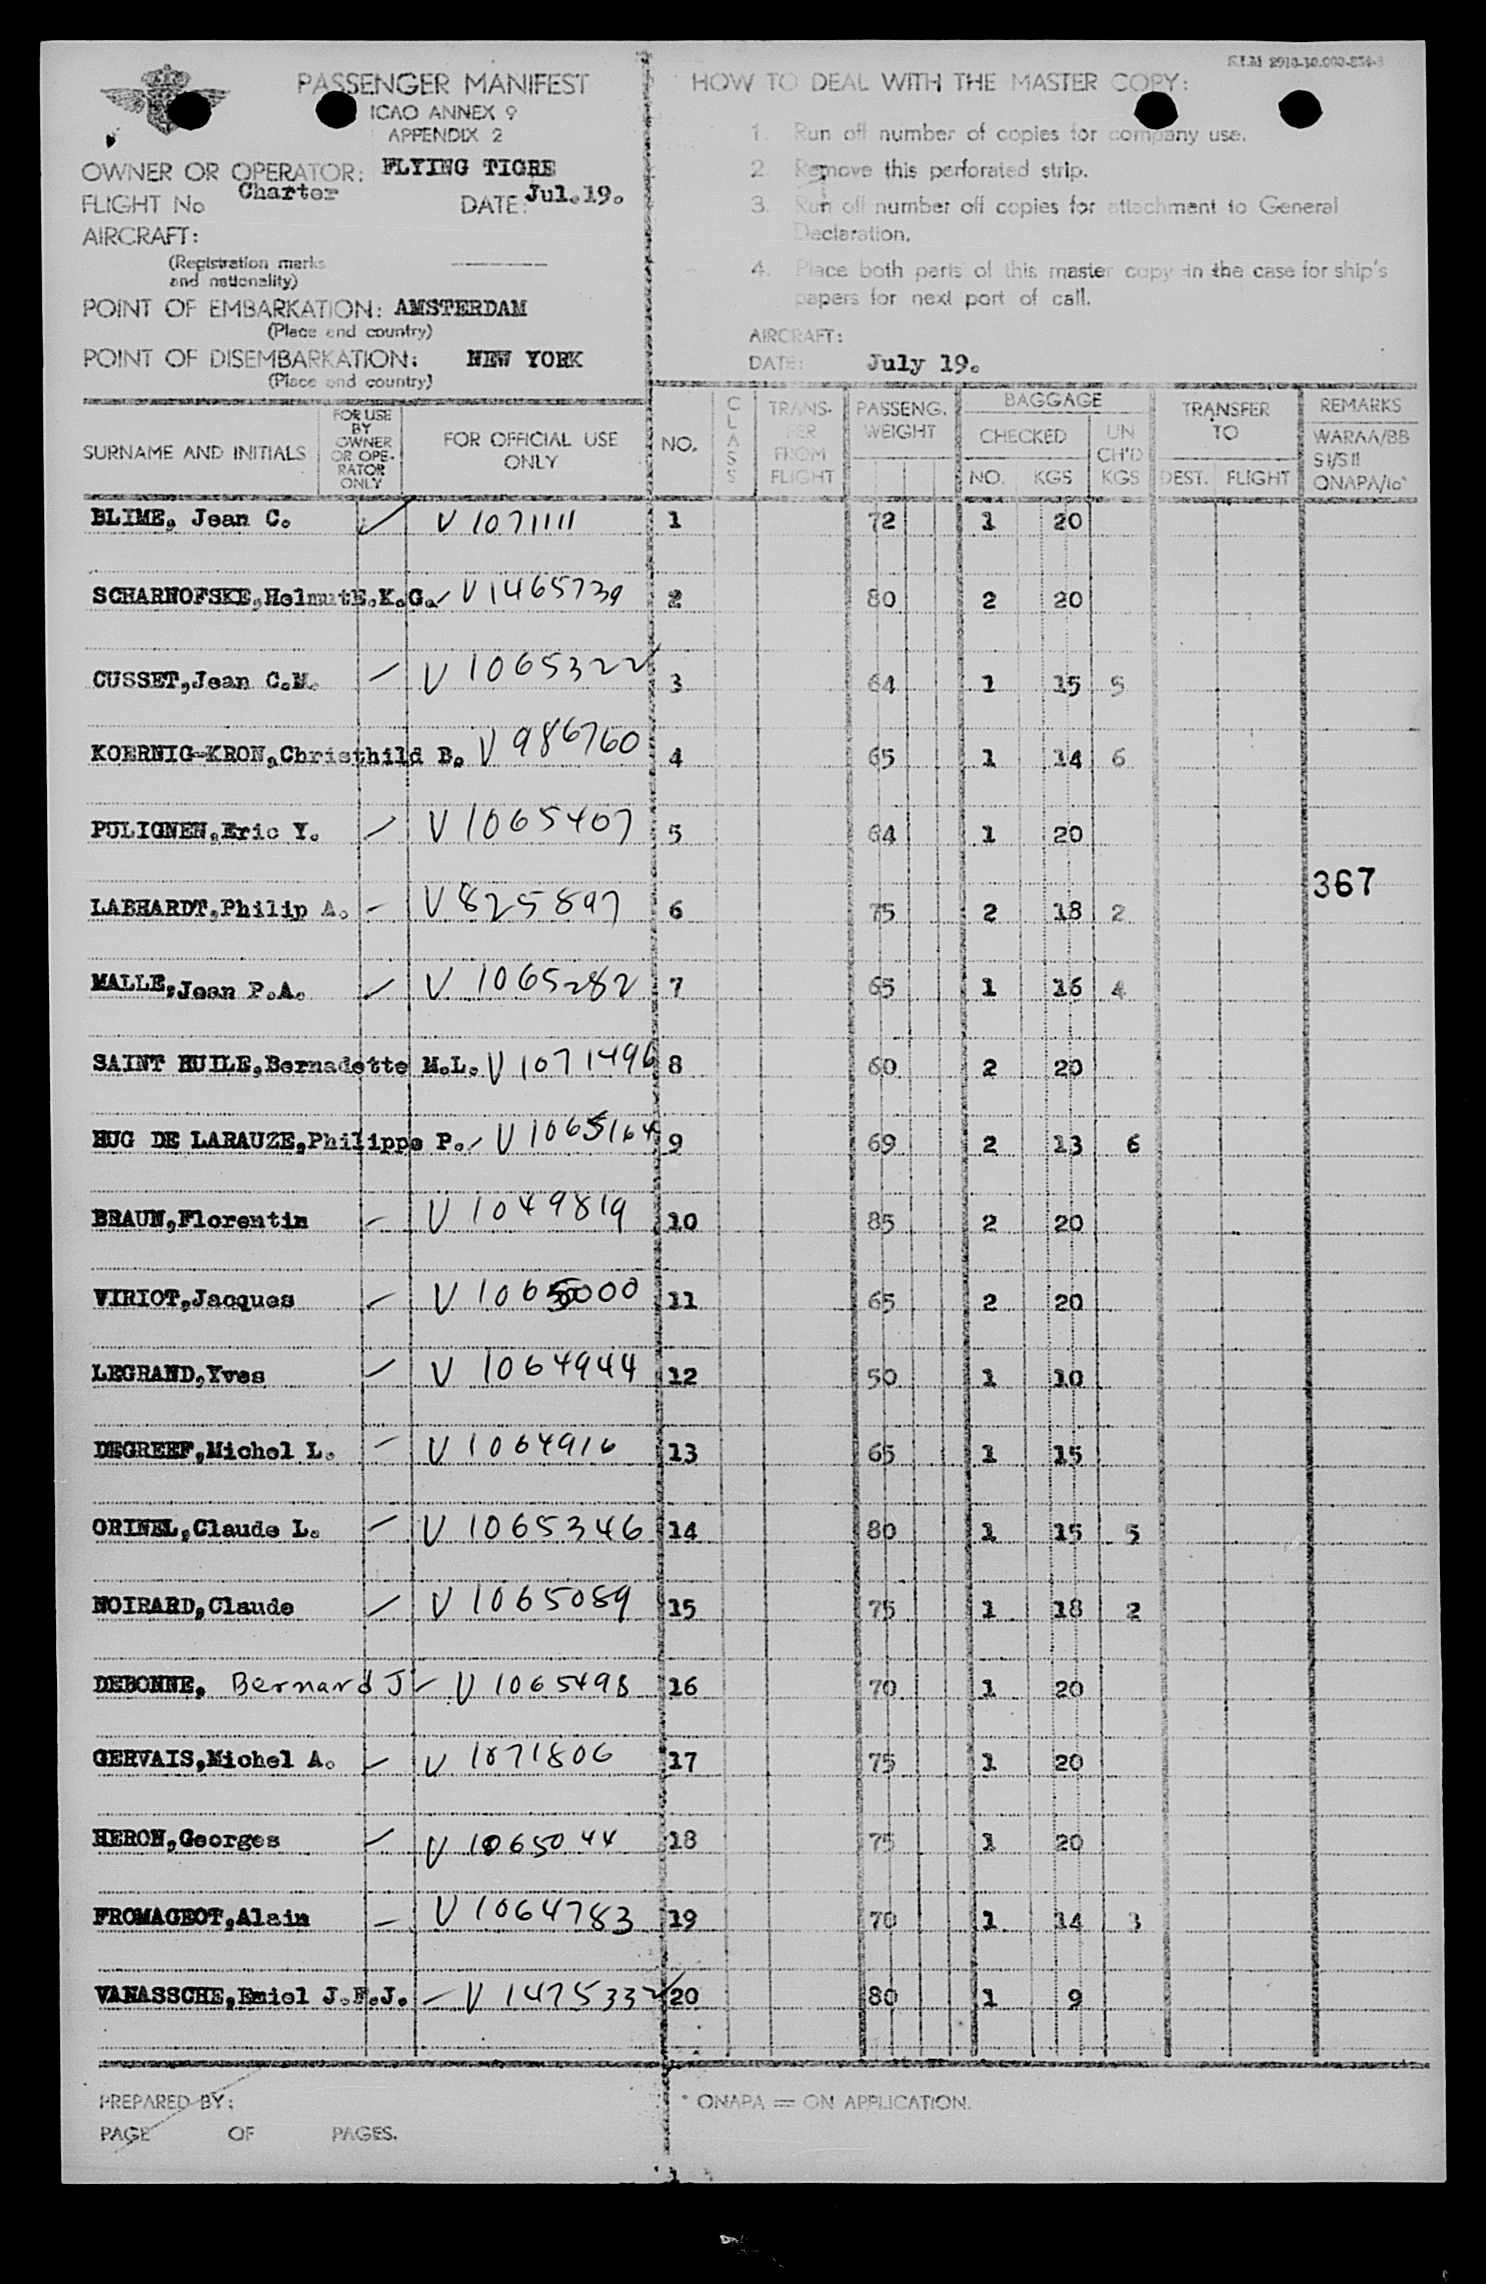 KLM 2910-10.000-854-3
PASSENGER MANIFEST
ICAO ANNEX 9
APPENDIX 2
OWNER OR OPERATOR: FLYING TIGRE
FLIGHT No Charter DATE: Jul.19.
AIRCRAFT:
(Registration marks
and nationality)
POINT OF EMBARKATION: AMSTERDAM
(Place and country)
POINT OF DISEMBARKATION: NEW YORK
(Place and country)
HOW TO DEAL WITH THE MASTER COPY:
1. Run off number of copies for company use.
2. Remove this perforated strip.
3. Run off number off copies for attachment to General
Declaration.
4. Place both parts of this master copy in the case for ship's
papers for next port of call.
AIRCRAFT:
DATE: July 19.
SURNAME AND INITIALS FOR USE BY OWNER OR OPE-RATOR ONLY FOR OFFICIAL USE ONLY NO. CLASS TRANS-FER FROM FLIGHT PASSENG. WEIGHT BAGGAGE CHECKED NO. KGS UN CH'D KGS TRANSFER TO DEST. FLIGHT REMARKS WARAA/BB SI/SII ONAPA/10*
BLIME, Jean C. V 1071111 1 72 1 20
SCHARNOFSKE, Helmut E.K.G. V 1465739 2 80 2 20
CUSSET, Jean C.M. V 1065322 3 64 1 15 5
KOERNIG-KRON, Christhild B. V 986760 4 65 1 14 6
PULIGNEN, Eric Y. V 1065407 5 64 1 20
367
LABHARDT, Philip A. V 825897 6 75 2 18 2
MALLE, Jean P.A. V 1065282 7 65 1 16 4
SAINT HUILE, Bernadette M.L. V 1071496 8 60 2 20
HUG DE LARAUZE, Philippe P. V 1065164 9 69 2 13 6
BRAUN, Florentin V 1049819 10 85 2 20
VIRIOT, Jacques V 1065000 11 65 2 20
LEGRAND, Yves V 1064944 12 50 1 10
DEGREEF, Michel L. V 1064916 13 65 1 15
ORINEL, Claude L. V 1065346 14 80 1 15 5
NOIRARD, Claude V 1065089 15 75 1 18 2
DEBONNE, Bernard J V 1065498 16 70 1 20
GERVAIS, Michel A. V 1071806 17 75 1 20
HERON, Georges V 1065044 18 75 1 20
FROMAGEOT, Alain V 1064783 19 70 1 14 3
VANASSCHE, Emiel J.F.J. V 1475332 20 80 1 9
PREPARED BY:
PAGE OF PAGES.
* ONAPA = ON APPLICATION.
1